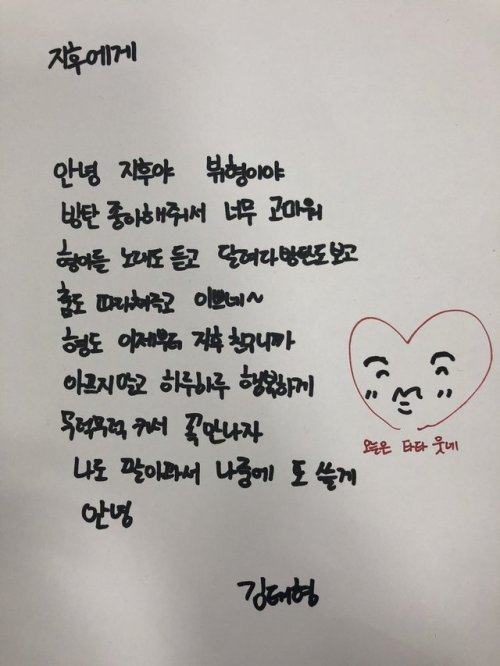 지후에게
안녕 지후야 뷔형이야
방탄 좋아해줘서 너무 고마워
형아들 노래도 듣고 달려라방탄도보고
춤도 따라춰주고 이쁘네~
형도 이제부터 지후 친구니까
아프지말고 하루하루 행복하게
무럭무럭 커서 꼭 만나자
나도 팔아파서 나중에 또 쓸게
안녕
오늘은 타타 웃네
김태형